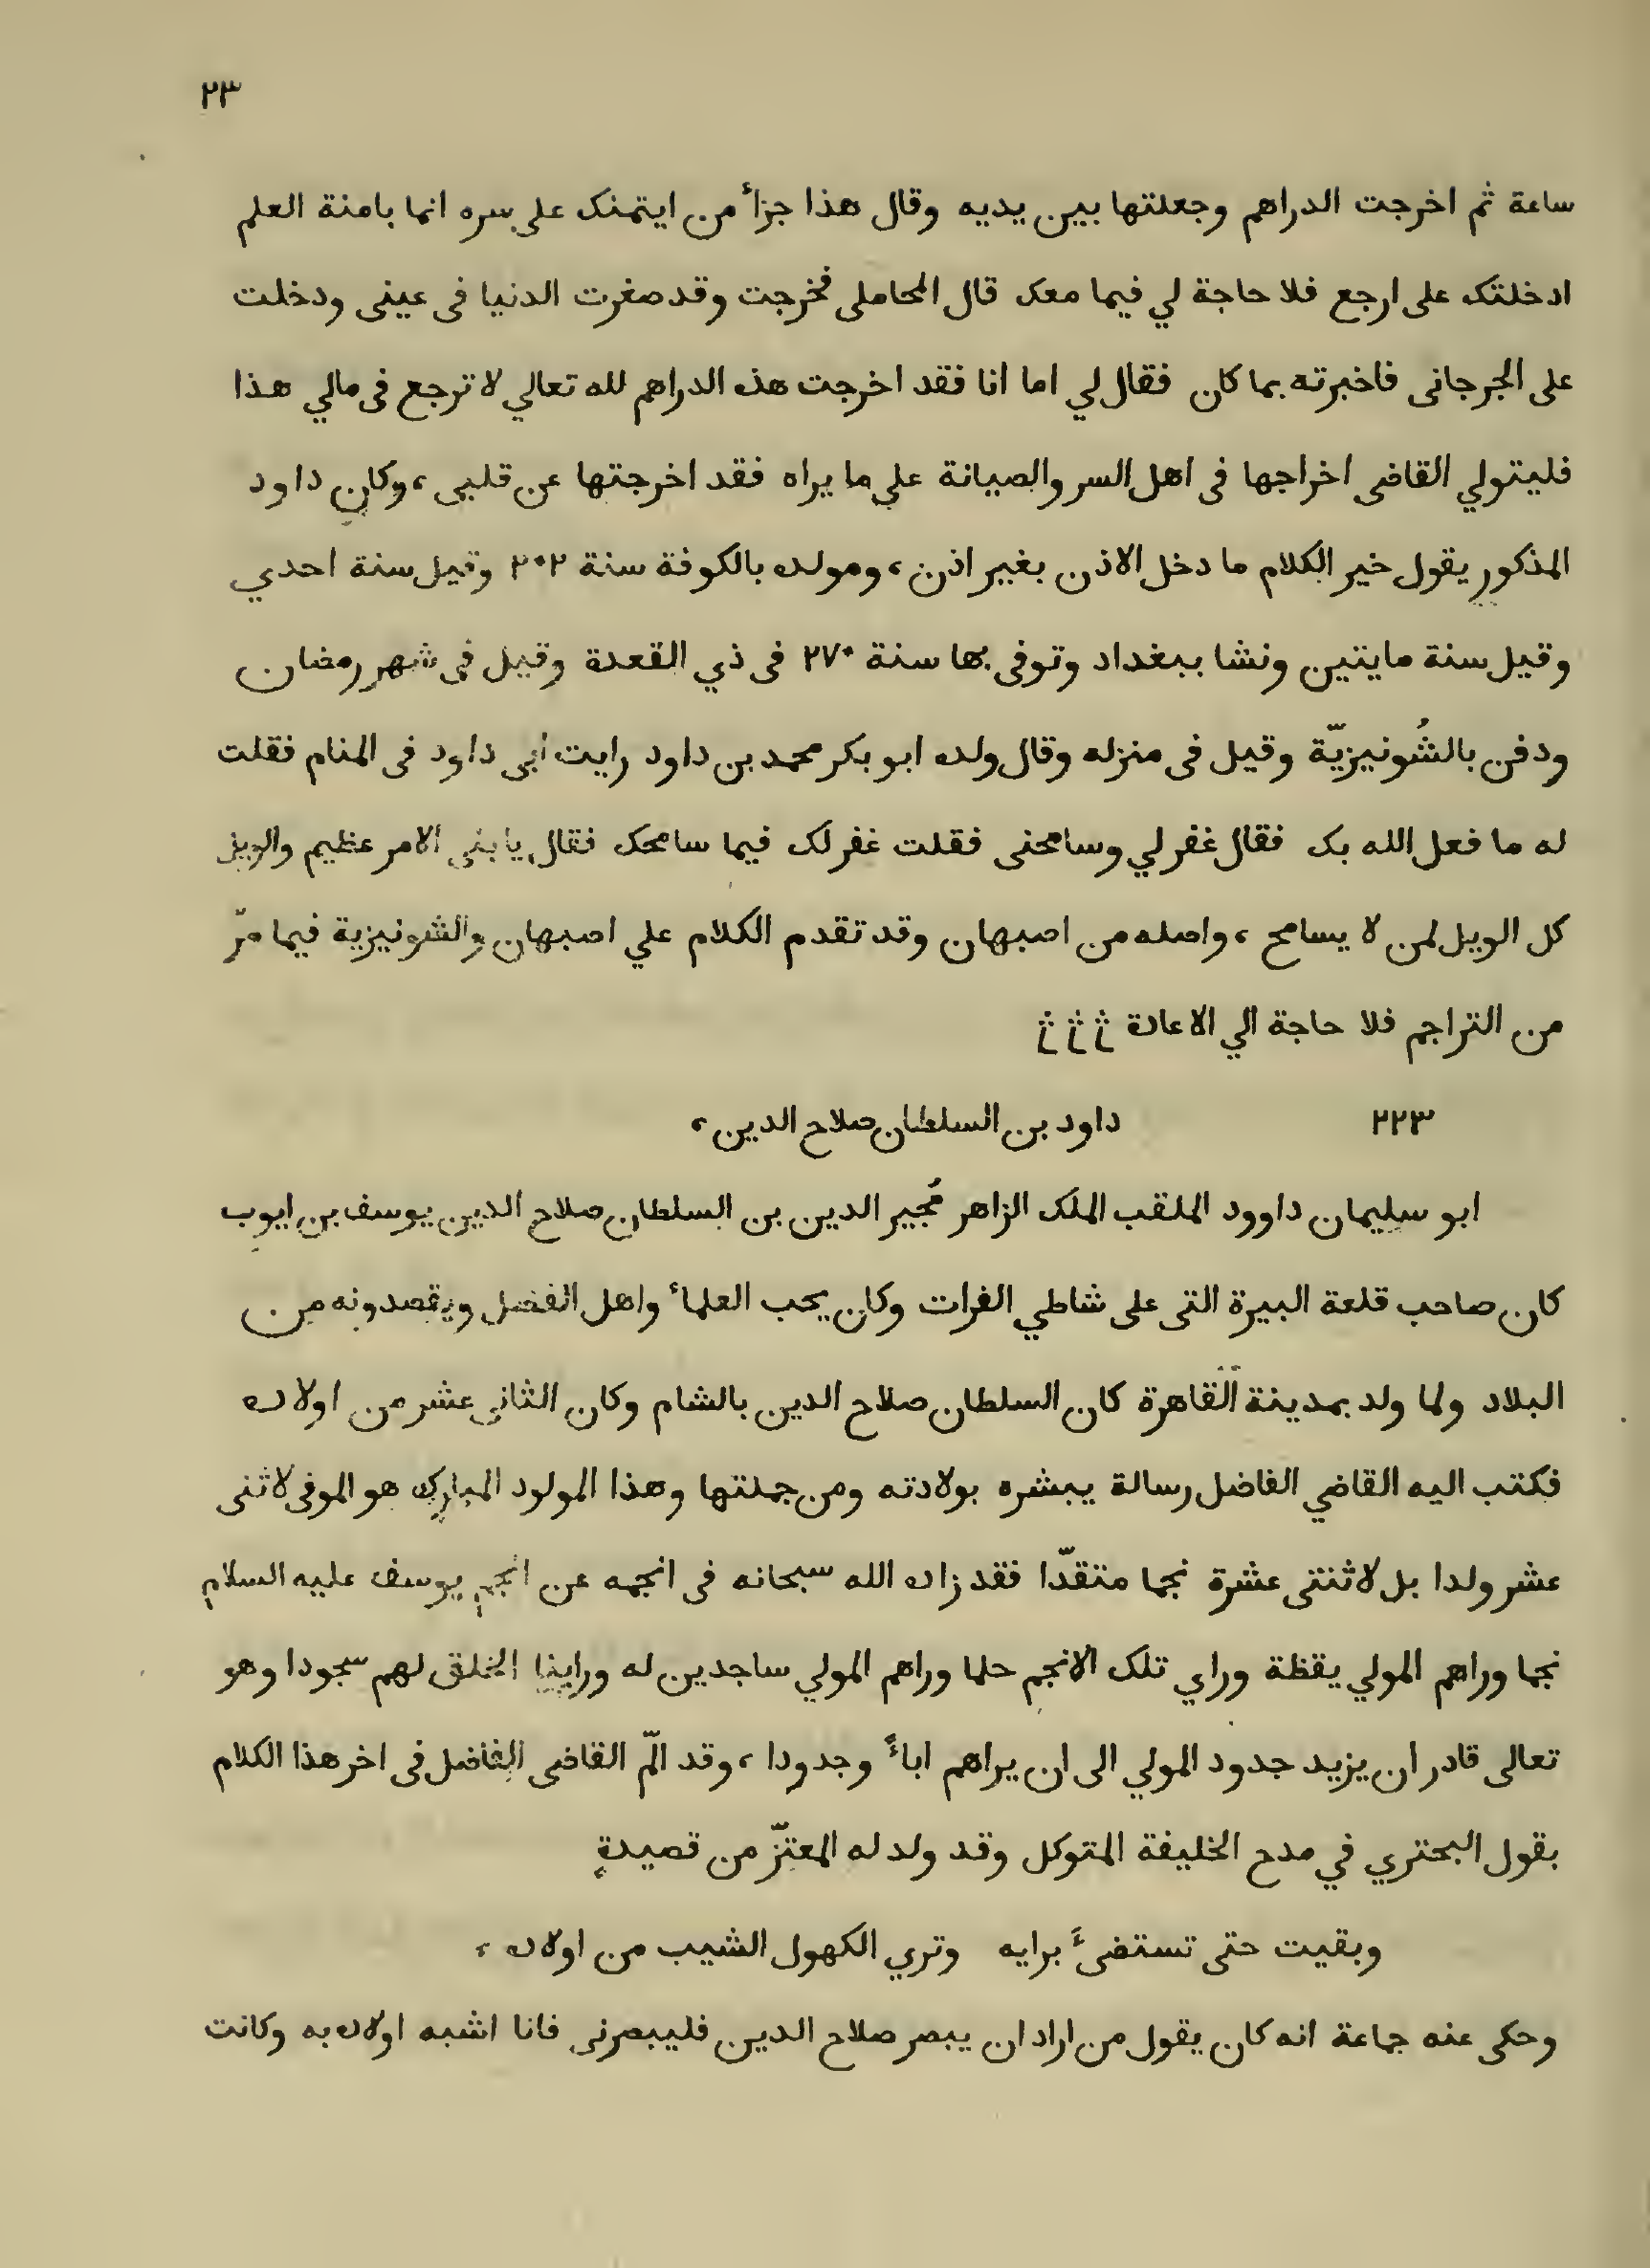 ٢٣
ساعة ثم اخرجت الدراهم وجعلتها بين يديه وقال هذا جزأ من ايتمنک على سره انما بامنة العلم
ادخلتک على ارجع فلا حاجة لي فيما معک قال المحاملى فخرجت وقد صغرت الدنيا فى عينى ودخلت
على الجرجانى فاخبرته بما كان فقال لي اما انا فقد اخرجت هذه الدراهم لله تعالي لا ترجع فى مالي هذا
فليتولي القاضى اخراجها فى اهل السر والصيانة علي ما يراه فقد اخرجتها عن قلبى، وكان داود
المذكور يقول خير الكلام ما دخل الاذن بغير اذن، ومولده بالكوفة سنة ٢٠٢ وقيل سنة احدي
وقيل سنة مايتين ونشا ببغداد وتوفى بها سنة ٢٧٠ فى ذي القعدة وقيل فى شهر رمضان
ودفن بالشُونيزيّة وقيل فى منزله وقال ولده ابو بكر محمد بن داود رايت ابى داود فى المنام فقلت
له ما فعل الله بک فقال غفر لي وسامحنى فقلت غفر لک فيما سامحک فقال يا بنى الامر عظيم والويل
كل الويل لمن لا يسامح، واصله من اصبهان وقد تقدم الكلام علي اصبهان والشونيزية فيما مرّ
من التراجم فلا حاجة الي الاعادة
٢٢٣ داود بن السلطان صلاح الدين،
ابو سليمان داوود الملقب الملک الزاهر مُجير الدين بن السلطان صلاح الدين يوسف بن ايوب
كان صاحب قلعة البيرة التى على شاطي الفرات وكان يحب العلمأ واهل الفضل ويقصدونه من
البلاد ولما ولد بمدينة القاهرة كان السلطان صلاح الدين بالشام وكان الثانى عشر من اولاده
فكتب اليه القاضي الفاضل رسالة يبشره بولادته ومن جملتها وهذا المولود المبارک هو الموفى لاثنى
عشر ولدا بل لاثنتى عشرة نجما متقدّا فقد زاده الله سبحانه فى انجمه عن انجم يوسف عليه السلام
نجما وراهم المولي يقظة وراي تلک الانجم حلما وراهم المولي ساجدين له وراينا الخلق لهم سجودا وهو
تعالى قادر ان يزيد جدود المولي الى ان يراهم اباءً وجدودا، وقد المّ القاضى الفاضل فى اخر هذا الكلام
بقول البحتري في مدح الخليفة المتوكل وقد ولد له المعتزّ من قصيدةٍ
وبقيت حتى تستضىءَ برايه وتري الكهول الشيب من اولاده،
وحكى عنه جماعة انه كان يقول من اراد ان يبصر صلاح الدين فليبصرنى فانا اشبه اولاده به وكانت